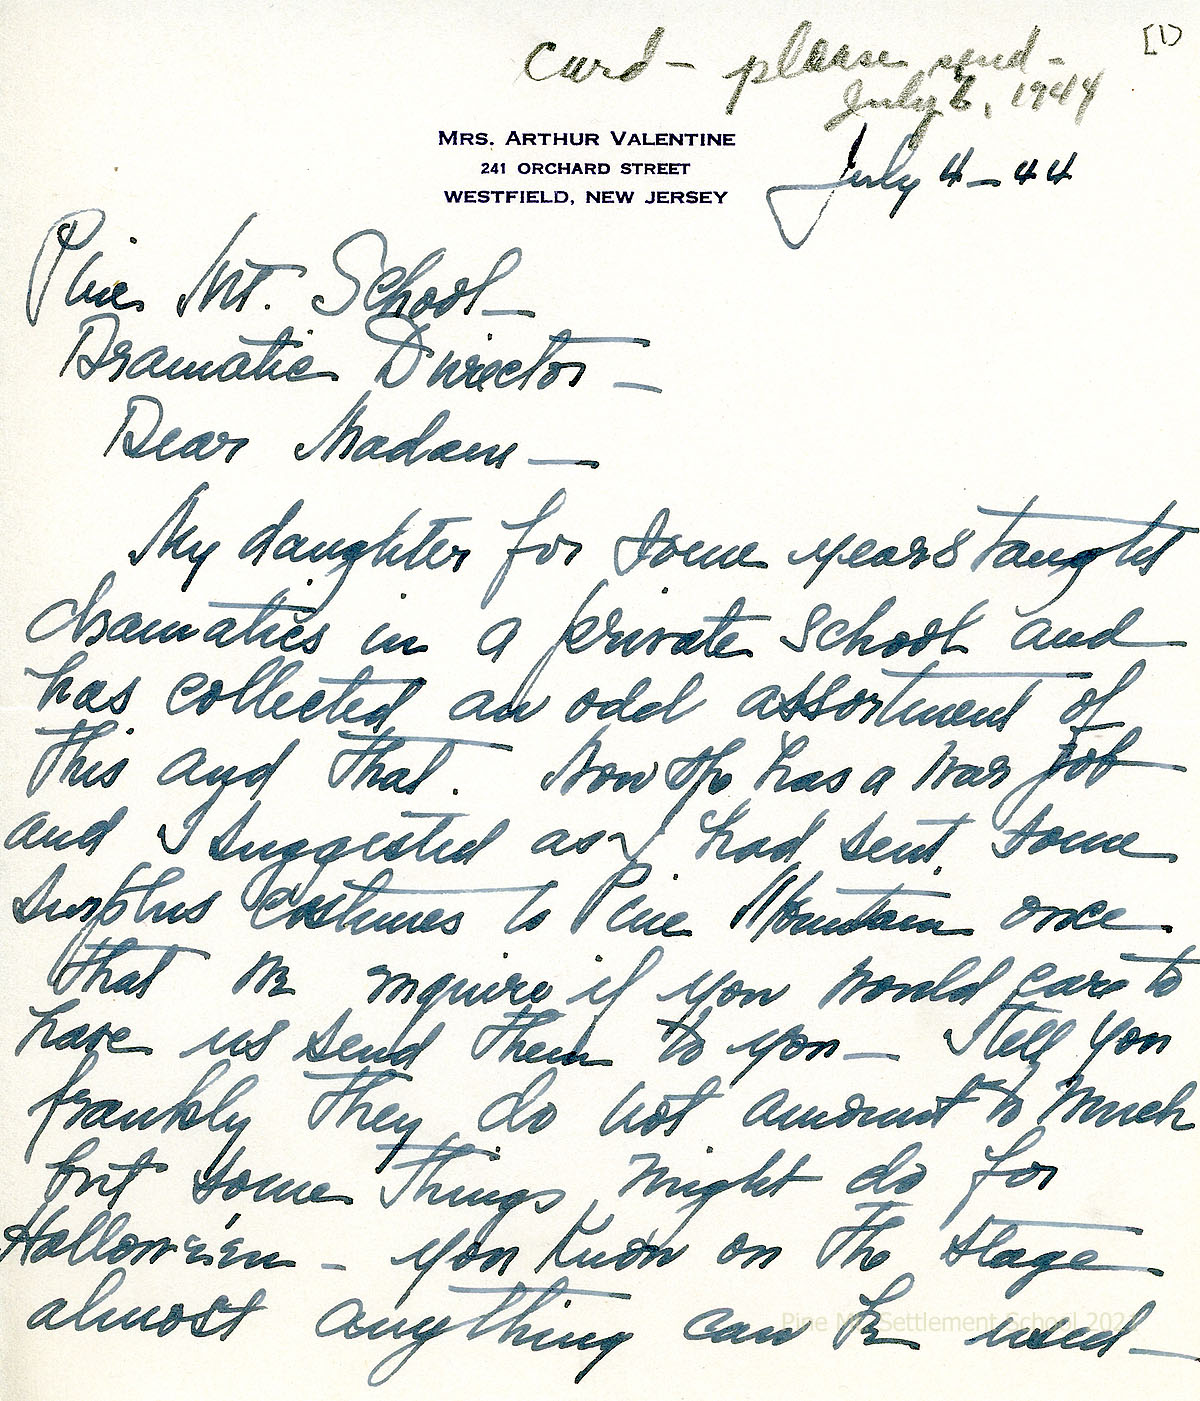 [1]
Card - please send -
July 6, 1944
MRS. ARTHUR VALENTINE
241 ORCHARD STREET
WESTFIELD, NEW JERSEY
July 4 - 44
Pine Mt. School -
Dramatic Director -
Dear Madam -
My daughter for some years taught
dramatics in a private school and
has collected an odd assortment of
this and that. Now she has a war job
and I suggested as I had sent some
surplus costumes to Pine Mountain once
that we inquire if you would care to
have us send them to you - I tell you
frankly they do not amount to much
but some things might do for
Hallowe'en - you know on the stage
almost anything can be used -
Pine Mt. Settlement School 202